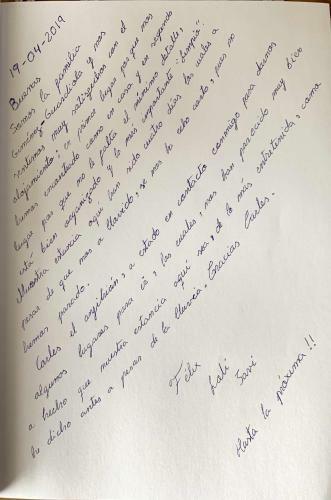 19-04-2019
Buenas
Somos la familia
Giménez-Guardiola y nos
sentimos muy satisfechos con el
alojamiento; en primer lugar por que nos
hemos encontrado como en casa y en segundo
lugar por que no le faltra el mínimo detalle,
está bien organizado y lo más importante "limpio".
Nuestra estancia aquí han sido cuatro días los cuales a
pesar de que nos a llovido, se nos ha echo corto, pues no
hemos parado.
Carles el anfitrión, a estado en contacto conmigo para darnos
algunos lugares para ir, los cuales, nos han parecido muy bien
a hecho que nuestra estancia aquí sea, de lo más entretenida, como
he dicho antes a pesar de la lluvia. Gracias Carles.
Félix
Lali
Javi
Hasta la próxima!!